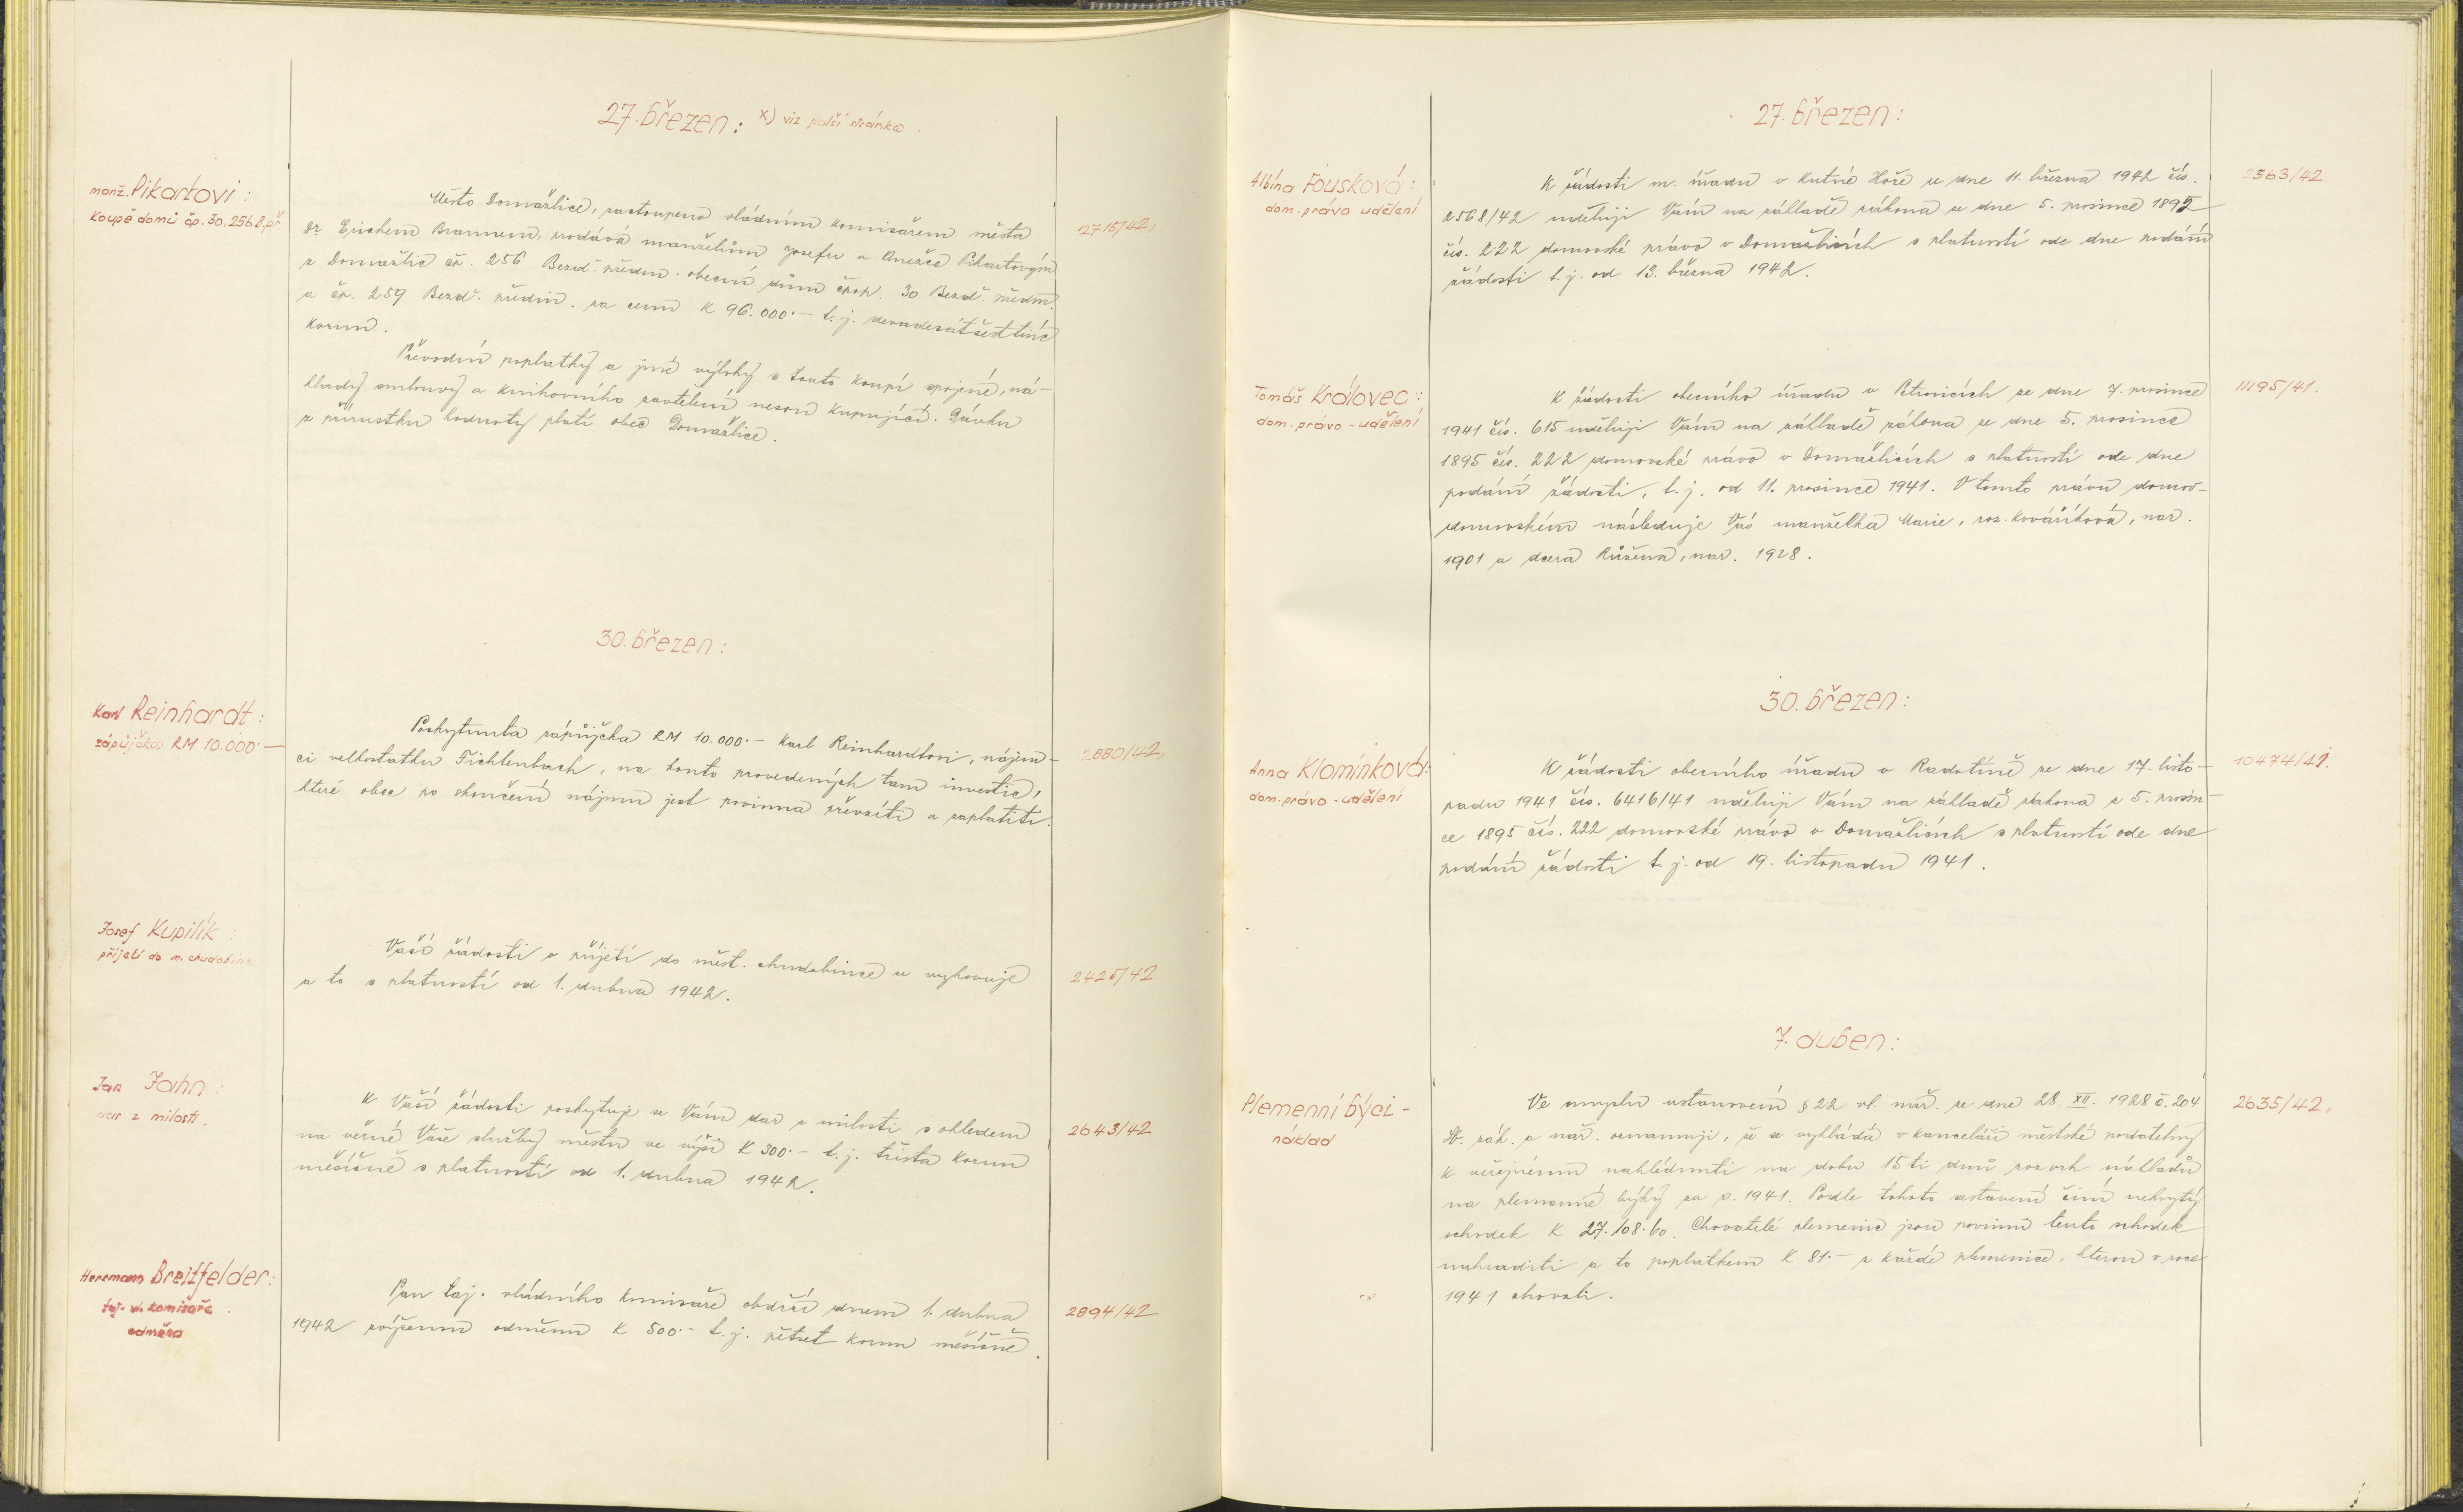 27. březen: x) viz další stránka.
manž. Pikartovi:
koupě domů čp. 30, 256 B. př.
Město Domažlice, zastoupeno vládním komisařem města
Dr Erichem Braunem, prodává manželům Josefu a Anežce Pikartovým
z Domažlic čp. 256 Bezd. předm. obecní dům čpop. 30 Bezd. předm.
a čp. 259 Bezd. předm. za cenu K 96.000·- t. j. devadesátšesttisíc
korun.
2715/42,
Převodní poplatky a jiné výlohy s touto koupí spojené, ná-
klady smlouvy a knihovního vtělení nesou kupující. Dávku
z přírustku hodnoty platí obec Domažlice.
30. březen:
Karl Reinhardt:
zápůjčka RM 10.000·—
Poskytnuta zápůjčka RM 10.000·- Karl Reinhardtovi, nájem-
ci velkostatku Fichtenbach, na konto provedených tam investic,
které obec po skončení nájmu jest povinna převzíti a zaplatiti.
2880/42,
Josef Kupilík:
přijetí do m. chudobince
Vaší žádosti o přijetí do měst. chudobince se vyhovuje
a to s platností od 1. dubna 1942.
2425/42
Jan Jahn:
dar z milosti.
K Vaší žádosti poskytuje se Vám dar z milosti s ohledem
na věrné Vaše služby městu ve výši K 300·- t. j. třista korun
měsíčně s platností od 1. dubna 1942.
2643/42
Herrmann Breitfelder:
taj. vl. komisaře.
odměna
Pan taj. vládního komisaře obdrží dnem 1. dubna
1942 zvýšenou odměnu K 500·- t. j. pětset korun měsíčně.
2894/42
27. březen:
Albína Fousková:
dom. právo udělení
K žádosti m. úřadu v Kutné Hoře ze dne 11. března 1942 čís.
2568/42 uděluji Vám na základě zákona ze dne 5. prosince 1895
čís. 222 domovské právo v Domažlicích s platností ode dne podání
žádosti t. j. od 13. března 1942.
2363/42
Tomáš Královec:
dom. právo - udělení
K žádosti obecního úřadu v Petrovicích ze dne 7. prosince
1941 čís. 615 uděluji Vám na základě zákona ze dne 5. prosince
1895 čís. 222 domovské právo v Domažlicích s platností ode dne
podání žádosti, t. j. od 11. prosince 1941. V tomto právu domov-
domovském následuje Vás manželka Marie, roz. Kovaříková, nar.
1901 a dcera Růžena, nar. 1928.
11195/41.
30. březen:
Anna Klomínková:
dom. právo - udělení
K žádosti obecního úřadu v Radotíně ze dne 17. listo-
padu 1941 čís. 6416/41 uděluji Vám na základě zákona z 5. prosin-
ce 1895 čís. 222 domovské právo v Domažlicích s platností ode dne
podání žádosti t. j. od 19. listopadu 1941.
10474/41.
7. duben:
Plemenní býci -
náklad
Ve smyslu ustanovení § 22 vl. nař. ze dne 28. XII. 1928 č. 204
Sb. zák. a nař. oznamuji, že se vykládá v kanceláři městské podatelny
k veřejnému nahlédnutí na dobu 15ti dnů rozvrh nákladů
na plemenné býky za r. 1941. Podle tohoto sestavení činí nekrytý
schodek K 27.108·60. Chovatelé plemenic jsou povinni tento schodek
nahraditi a to poplatkem K 81·- z každé plemenice, kterou v roce
1941 chovali.
2635/42,